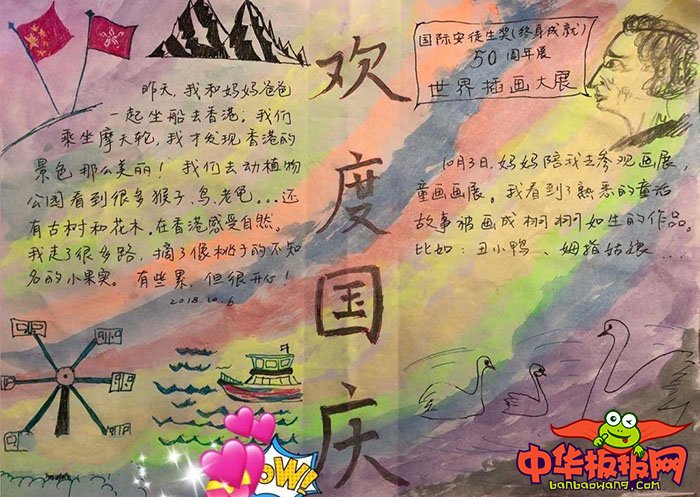 欢度国庆
昨天,我和妈妈爸爸
一起坐船去香港,我们
乘坐摩天轮,我才发现香港的
景色那么美丽!我们去动植物
公园看到很多猴子、鸟、老龟...还
有古树和花木。在香港感受自然。
我走了很多路,摘了像桃子的不知
名的小果实。有些累,但很开心!
2018.10.6
国际安徒生奖(终身成就)
50周年展
世界插画大展
10月3日,妈妈陪我去参观画展,
童画画展。我看到了熟悉的童话
故事被画成栩栩如生的作品。
比如:丑小鸭、姆指姑娘....
WOW!
中华板报网
banbaowang.com